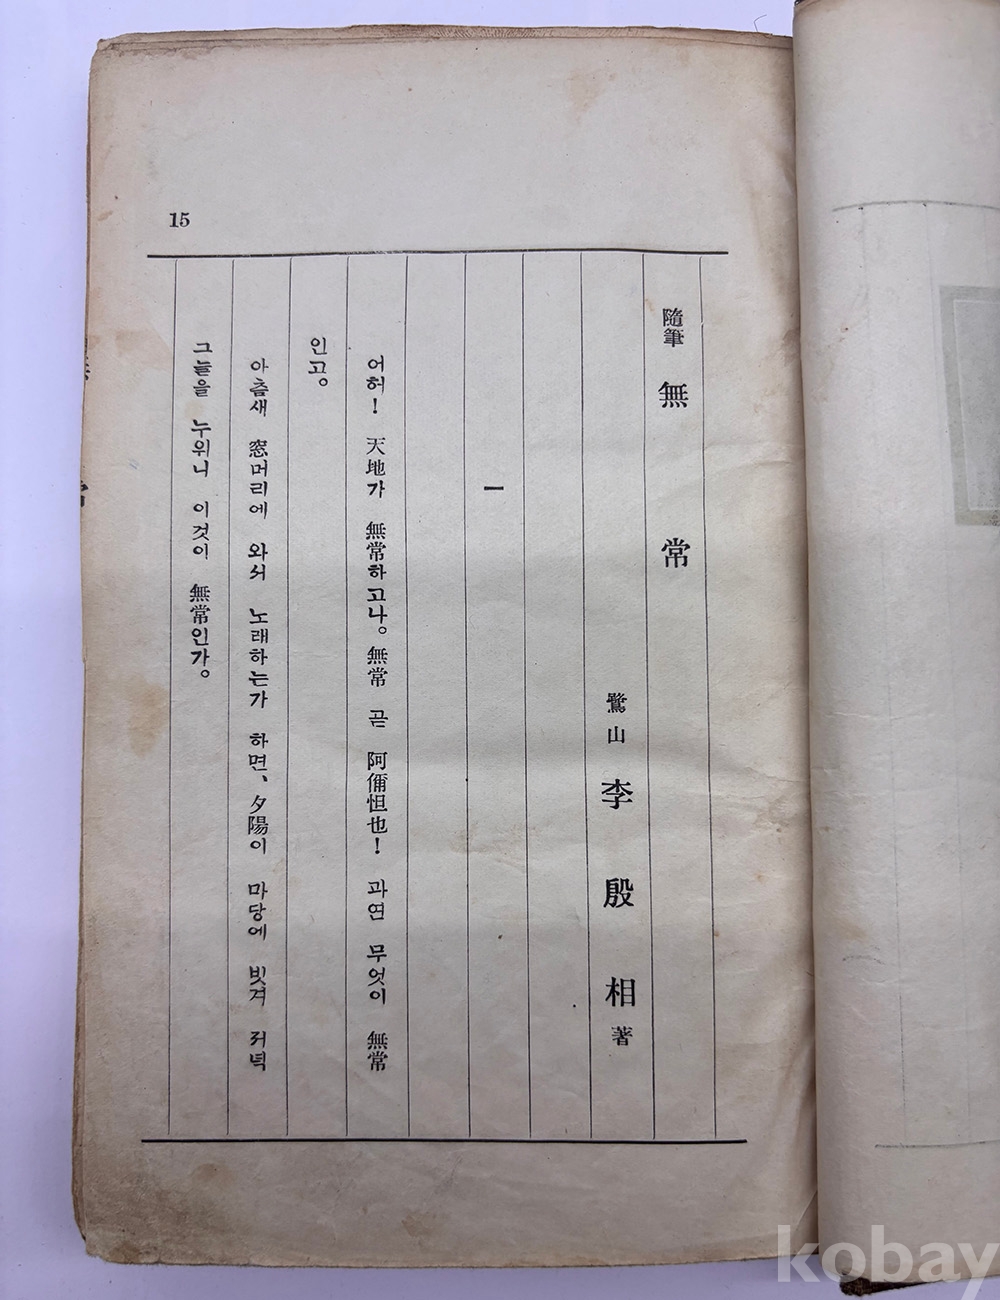 隨筆 無常
鷺山 李殷相 著
一
어허! 天地가 無常하고나。無常 곧 阿儞怛也! 과연 무엇이 無常
인고。
아츰새 窓머리에 와서 노래하는가 하면、夕陽이 마당에 빗겨 저녁
그늘을 누위니 이것이 無常인가。
15
kobay